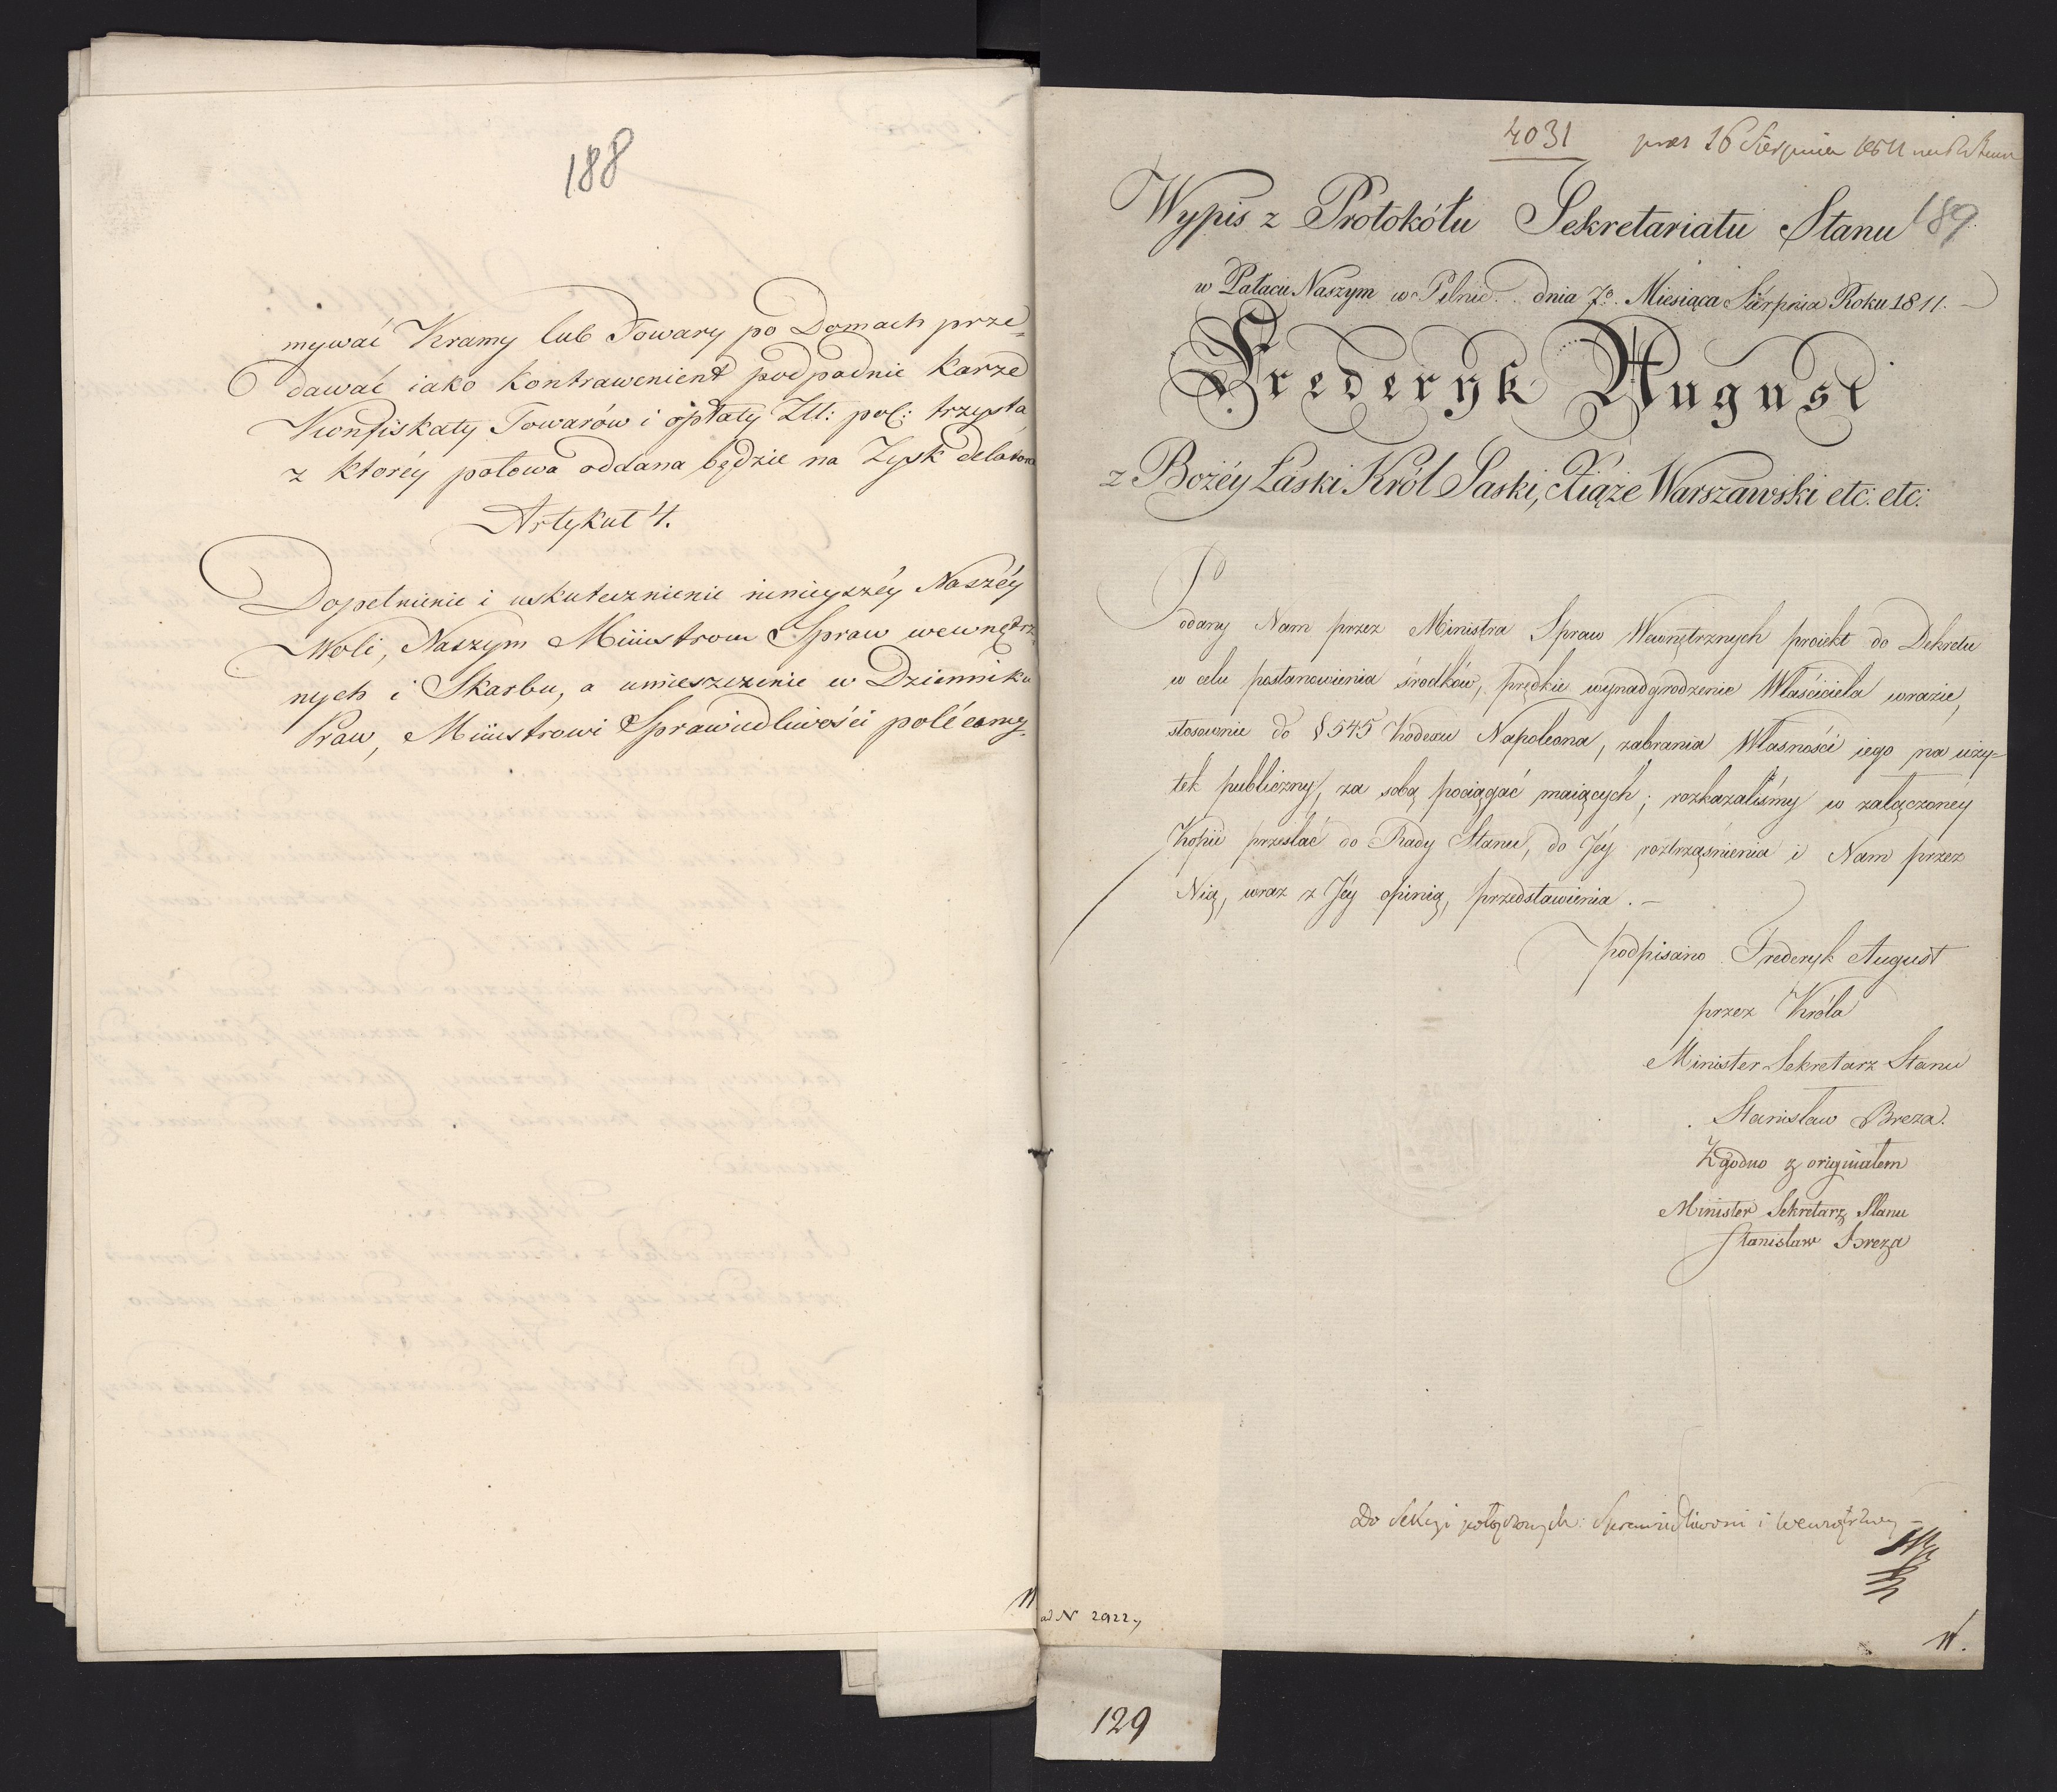 188
mywać Kramy lub Towary po Domach prze=
dawać iako Kontrawenient podpadnie karze
Konfiskaty Towarów i opłaty Złł: pol: trzysta,
z ktoréy połowa oddana będzie na Zysk delatora
Artykuł 4.
Dopełnienie i uskutecznienie ninieyszéy Naszéy
Woli, Naszym Ministrom Spraw wewnętrz-
nych i Skarbu, a umieszczenie w Dzienniku
Praw, Ministrowi Sprawiedliwości polécamy.
4031 prez 16 Sierpnia 1811
Wypis z Protokółu Sekretariatu Stanu 189.
w Pałacu Naszym w Pilnic. dnia 7o. Miesiąca Sierpnia Roku 1811.
Frederyk August
z Bożéy Łaski Król Saski, Xiąże Warszawski etc: etc:
Podany Nam przez Ministra Spraw Wewnętrznych proiekt do Dekretu
w celu postanowienia środków, prędkie wynadgrodzenie Właściciela wrazie,
stosownie do § 545 Kodexu Napoleona, zabrania Własności iego na uży=
tek publiczny, za sobą pociągać maiących; rozkazaliśmy w załączonéy
Kopii przesłać do Rady Stanu, do Jéy roztrząśnienia i Nam przez
Nią, wraz z Jéy opinią, przedstawienia. —
podpisano Frederyk August
przez Króla
Minister Sekretarz Stanu
Stanisław Breza.
Zgodno z originałem
Minister Sekretarz Stanu
Stanisław Breza
Do Sekcyi połączonych: Sprawiedliwości i Wewnętrzney
ad N 2922.
N.
129